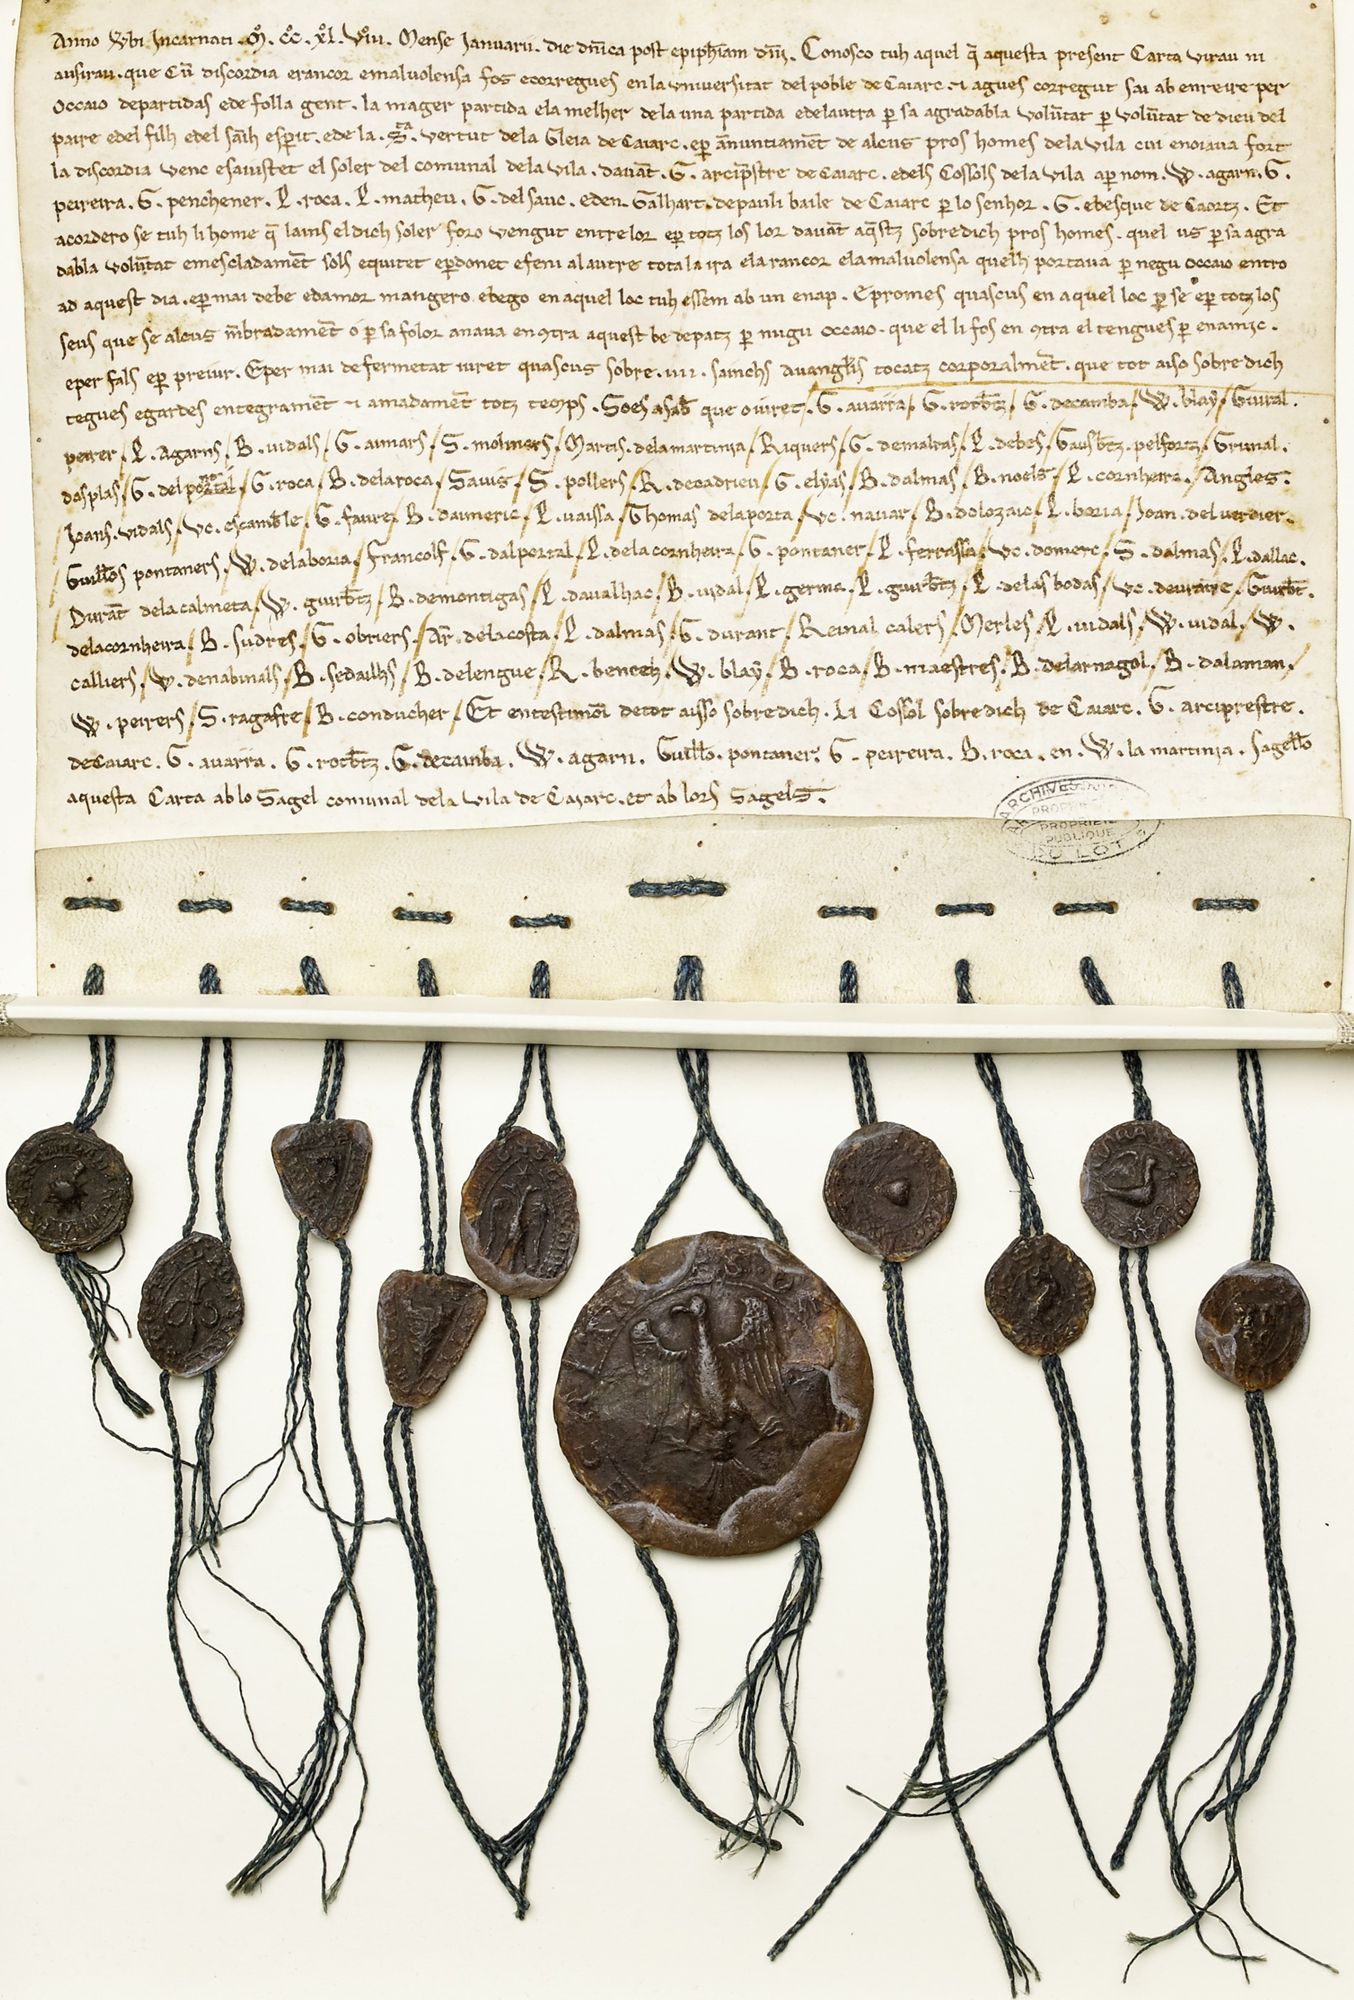 Anno Vbi Incarnati .M. cc. xl. viii. Mense Januarii. die dn̄ica post epiph̄iam dn̄i. Conosco tuh aquel q̄ aquesta present Carta virau ni
ausirau. que Cū discordia erancor emaluolensa fos ecorregues en la vniuersitat del poble de Caiarc. ⁊ agues corregut sai ab enreire per
Occaio departidas ede folla gent. la mager partida ela melher de la una partida edelautra p̱ sa agradabla volūtat p̱ volūtat de dieu del
paire edel filh edel sāih esp̱it. ede la .Sᵃ. vertut de la Gleia de Caiarc. ep̱ ānuntiamēt de alcus pros homes de la vila cui enoiaua fort
la discordia venc esauistet el soler del comunal de la vila. dauāt. G. arcip̄stre de Caiarc. edels Cossols de la vila ap̱ nom. W. agarn. G.
peireira. G. penchener. P. roca. P. matheu. G. del sauc. eden. Galhart. depauli baile de Caiarc p̱ lo senhor. G. ebesque de Caortz. Et
acordero se tuh li home q̄ lains el dich soler foro vengut entrelor ep̱ totz los lor dauāt aq̄stz sobredich pros homes. quel us p̱ sa agra
dabla volūtat emescladamēt sols equitet ep̱donet efeni al autre tota la ira ela rancor ela maluolensa quelh portaua p̱ negu occaio entro
ad aquest dia. ep̱ mai debe edamor mangero ebego en aquel loc tuh essem ab un enap. Epromes quascus en aquel loc p̱ se ep̱ totz los
seus que se alcus m̄bradamēt o p̱ sa folor anaua en ꝯtra aquest be depatz p̱ nugu occaio. que el li fos en ꝯtra el tengues p̱ enamic.
eper fals ep̱ preiur. Eper mai de fermetat iuret quascus sobre .iiii. sainchs auangl̄is tocatz corporalmēt. que tot aiso sobredich
tegues egardes entegramēt ⁊ amadamēt totz temps. So es asab̄ que o iuret. G. auarra / G. rotb̄tz / G. decamba / W. blay / Guiral.
peirer / P. Agarns / B. uidals / G. aimars / S. moliners / Martis. de la martinia / Riquers / G. demaltas / P. debes / Gausb̄tz. pelfortz / Grimal.
dasplas / G. del portal / G. roca / B. de la roca / Sauis / S. pollers / R. decadrieu / G. elyas / B. dalmas / B. noels / P. cornheira / Angles.
Joans. vidals / Vc. escamble / G. faure / B. daimeric / P. uaissa / Thomas de la porta / Vc. nauar / B. dolozaic / P. boria / Joan. del verdier.
Guill̄os pontaners / W. de la boria / francolf / G. dal portal / P. de la cornheira / G. pontaner / P. ferrassa / Vc. domerc / S. dalmas / P. dallac.
Durāt de la calmeta / W. guirb̄tz / B. demontigas / P. daualhac / B. vidal / P. germa / P. guirb̄tz / P. de las bodas / Vc. / Guirb̄t.
de la cornheira / B. sudres / G. obriers / Ar̄. de la costa / P. dalmas / G. durant / Reinal calers / Merles / P. vidals / W. vidal / W.
calliers / denabinals / B. sedailhs / B. delengue / R. / W. blay / B. roca / B. maestres / B. delarnagol / B. dalaman /
W. peirers / S. ragafre / B. conducher / Et en testimōi de tot aisso sobredich. Li Cossol sobredich de Caiarc. G. arciprestre.
de Caiarc. G. auarra. G. rotb̄tz. G. decamba. W. agarn. Guill̄o. pontaner. G. peireira. B. roca. en. W. la martinia. Sagell̄o
aquesta Carta ab lo Sagel comunal de la vila de Caiarc. et ab lors Sagels.
ARCHIVES
PROPRIÉTÉ
PUBLIQUE
DU LOT